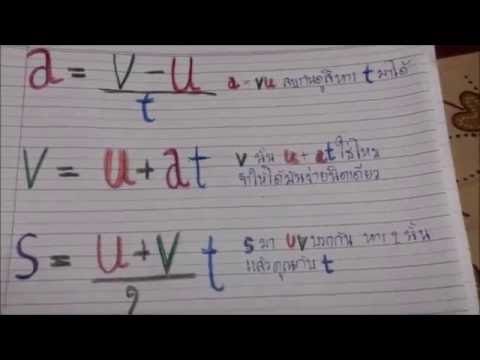 a = v - u / t
a - vu ลบกันดูสิหาร t มาได้
v = u + at
v นั้น u + at ใช่ไหม
จำให้ได้มันง่ายนิดเดียว
s = u + v / 2 t
s มา uv บวกกัน หาร 2 นั้น
แล้วคูณกับ t